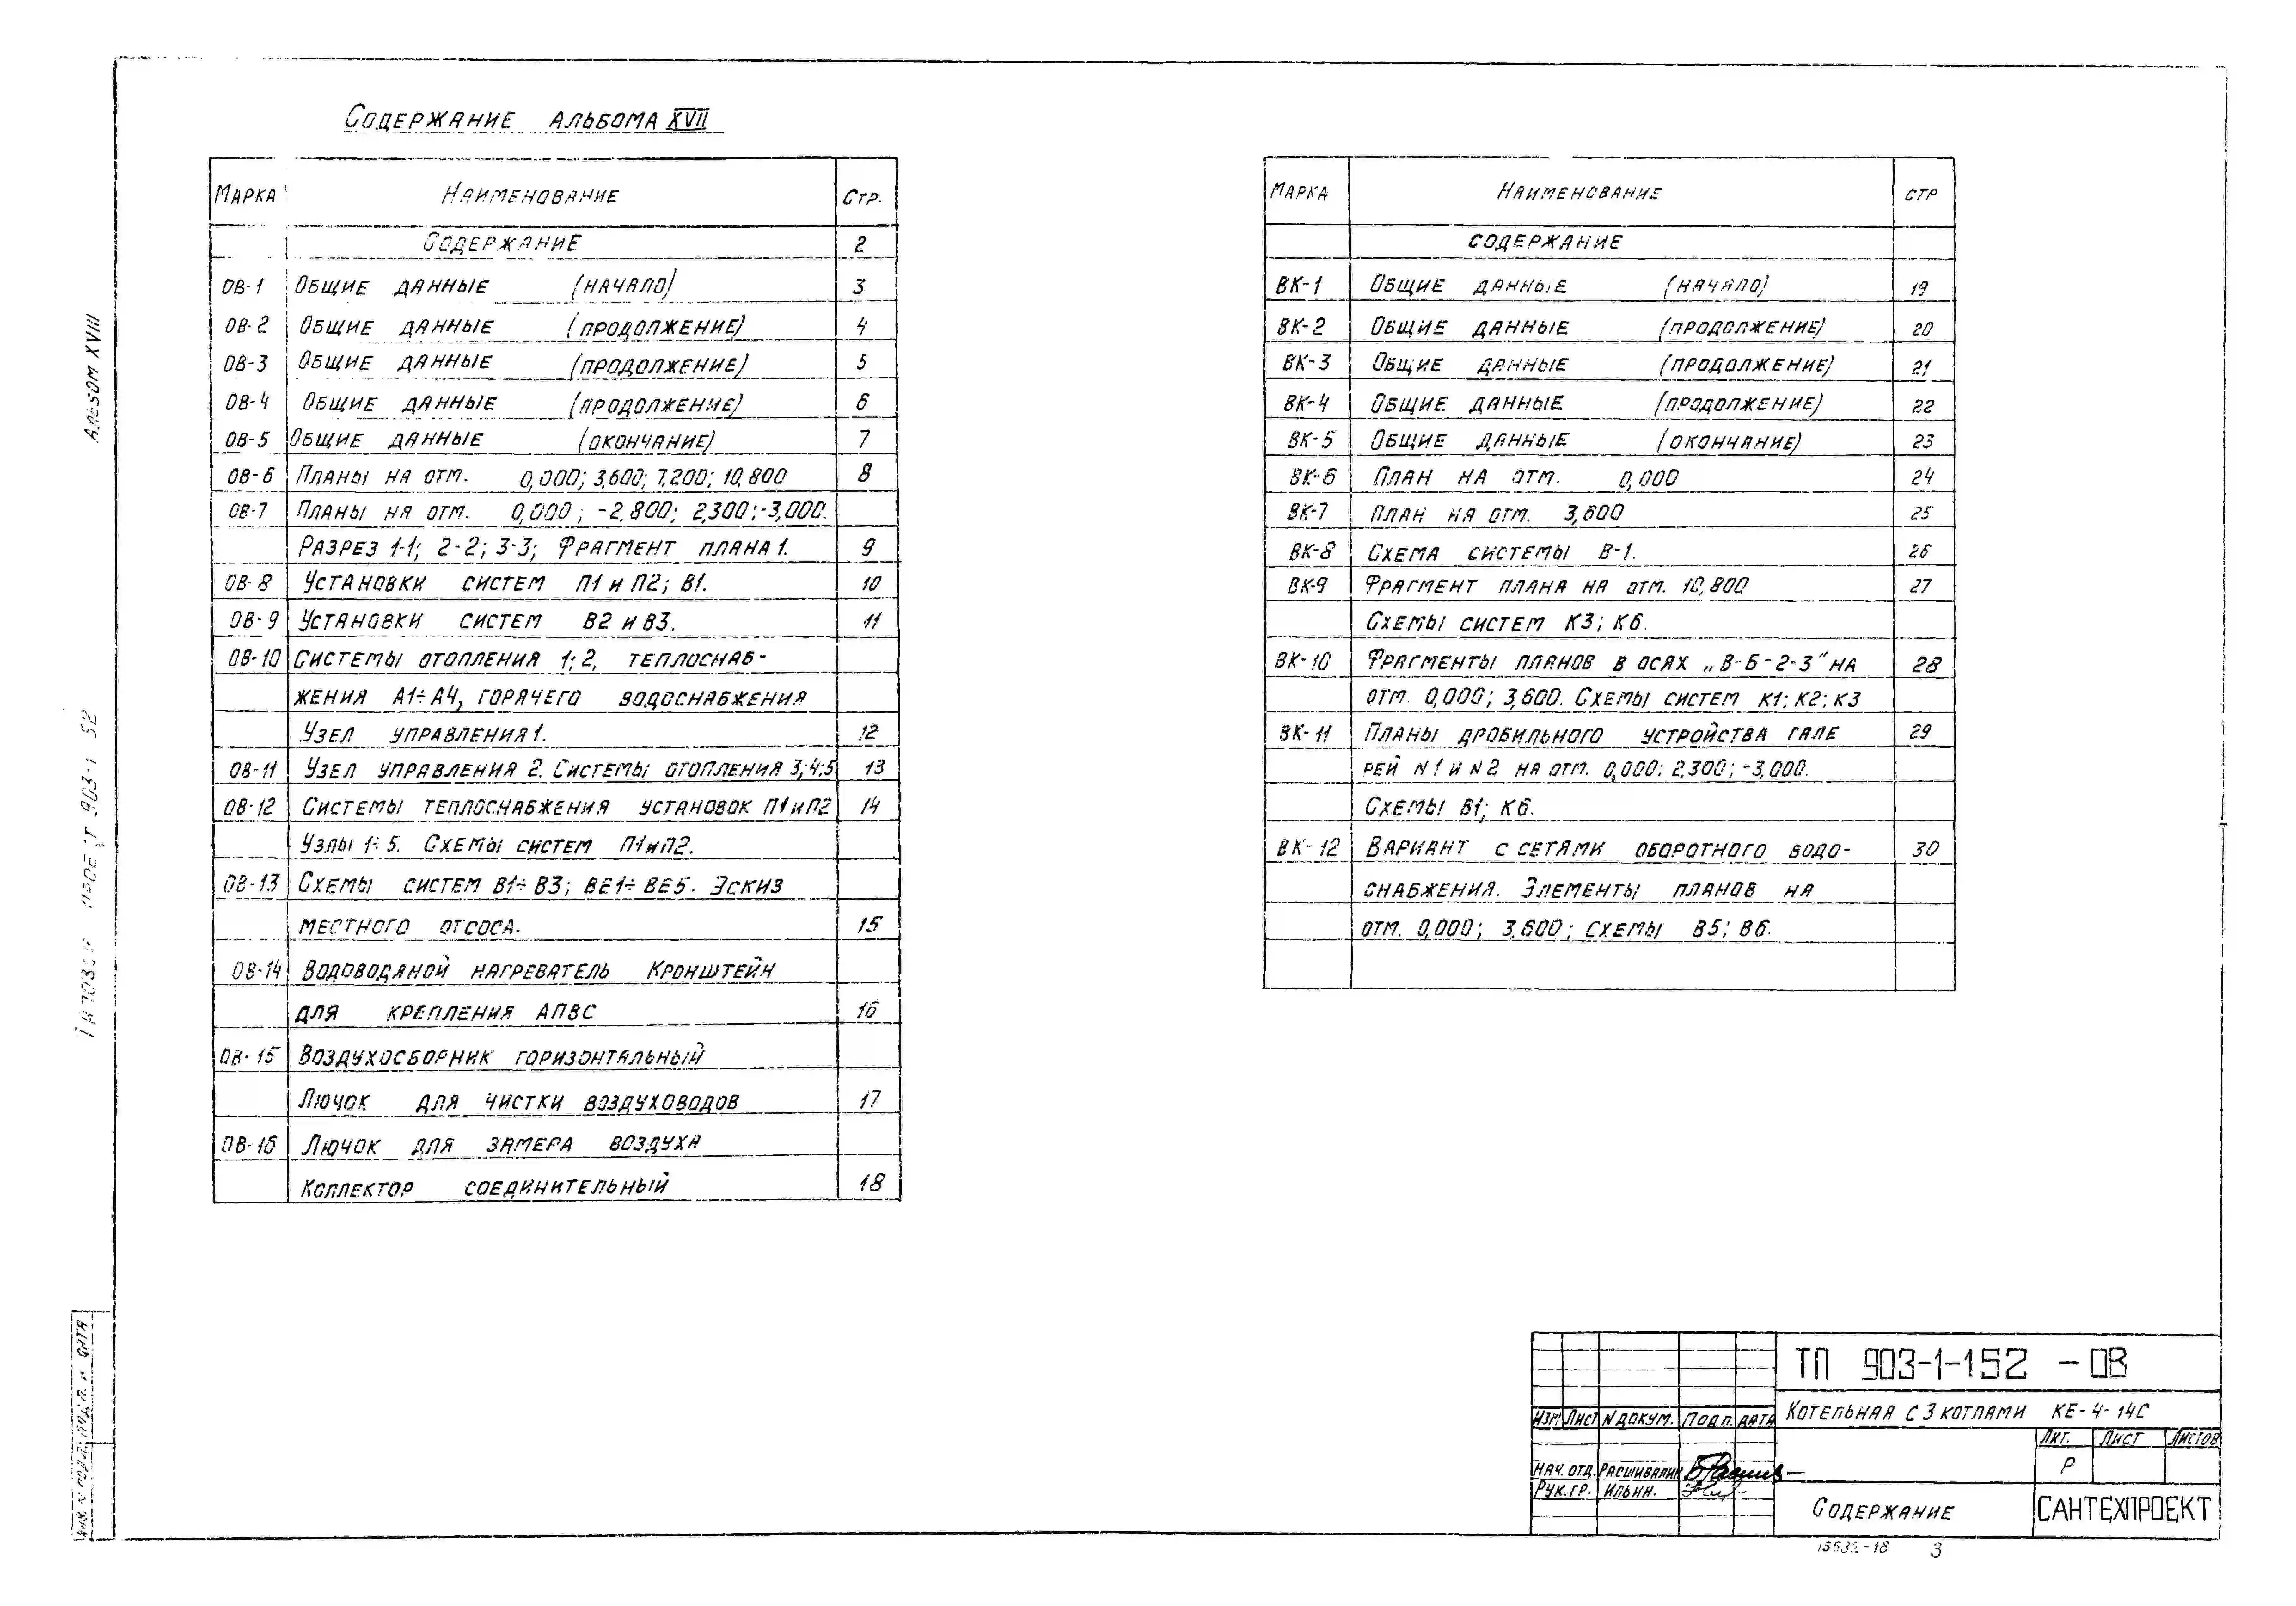 Содержание альбома XVII
Марка Наименование Стр.
Содержание 2
ОВ-1 Общие данные (начало) 3
ОВ-2 Общие данные (продолжение) 4
ОВ-3 Общие данные (продолжение) 5
ОВ-4 Общие данные (продолжение) 6
ОВ-5 Общие данные (окончание) 7
ОВ-6 Планы на отм. 0,000; 3,600; 7,200; 10,800 8
ОВ-7 Планы на отм. 0,000; -2,800; 2,300; -3,000.
Разрез 1-1; 2-2; 3-3; Фрагмент плана 1. 9
ОВ-8 Установки систем П1 и П2; В1. 10
ОВ-9 Установки систем В2 и В3. 11
ОВ-10 Системы отопления 1; 2, теплоснаб-
жения А1÷А4, горячего водоснабжения
Узел управления 1. 12
ОВ-11 Узел управления 2. Системы отопления 3; 4; 5 13
ОВ-12 Системы теплоснабжения установок П1 и П2 14
Узлы 1÷5. Схемы систем П1 и П2.
ОВ-13 Схемы систем В1÷В3; ВЕ1÷ВЕ5. Эскиз
местного отсоса. 15
ОВ-14 Водоводяной нагреватель Кронштейн
для крепления АПВС 16
ОВ-15 Воздухосборник горизонтальный
Лючок для чистки воздуховодов 17
ОВ-16 Лючок для замера воздуха
Коллектор соединительный 18
Марка Наименование стр
содержание
ВК-1 Общие данные (начало) 19
ВК-2 Общие данные (продолжение) 20
ВК-3 Общие данные (продолжение) 21
ВК-4 Общие данные (продолжение) 22
ВК-5 Общие данные (окончание) 23
ВК-6 План на отм. 0,000 24
ВК-7 План на отм. 3,600 25
ВК-8 Схема системы В-1. 26
ВК-9 Фрагмент плана на отм. 10,800 27
Схемы систем К3; К6.
ВК-10 Фрагменты планов в осях „В-Б-2-3" на 28
отм. 0,000; 3,600. Схемы систем К1; К2; К3
ВК-11 Планы дробильного устройства гале 29
рей N1 и N2 на отм. 0,000; 2,300; -3,000.
Схемы В1; К6.
ВК-12 Вариант с сетями оборотного водо- 30
снабжения. Элементы планов на
отм. 0,000; 3,600; схемы В5; В6.
Альбом XVIII
Типовой проект 903-1 52
Инв. N подл. Подп. и дата
ТП 903-1-152 -ОВ
Котельная с 3 котлами КЕ-4-14С
Изм Лист N докум. Подп. дата
Лит. Лист Листов
Р
Нач. отд. Расшивалин
Рук. гр. Ильин.
Содержание
САНТЕХПРОЕКТ
15532-18 3